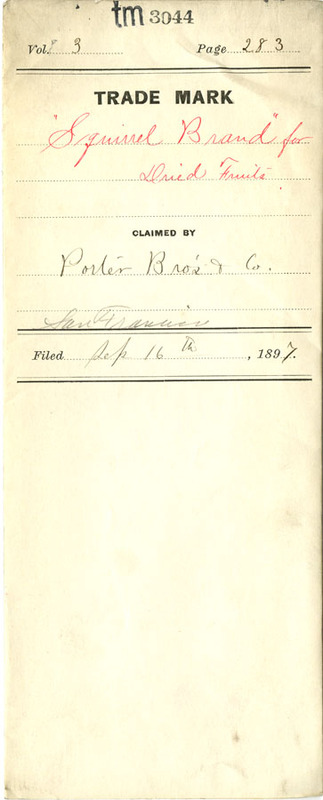 tm 3044
Vol. 3 Page 283
TRADE MARK
"Squirrel Brand" for
Dried Fruits
CLAIMED BY
Porter Bro's & Co.
San Francisco
Filed Sep 16th, 1897.